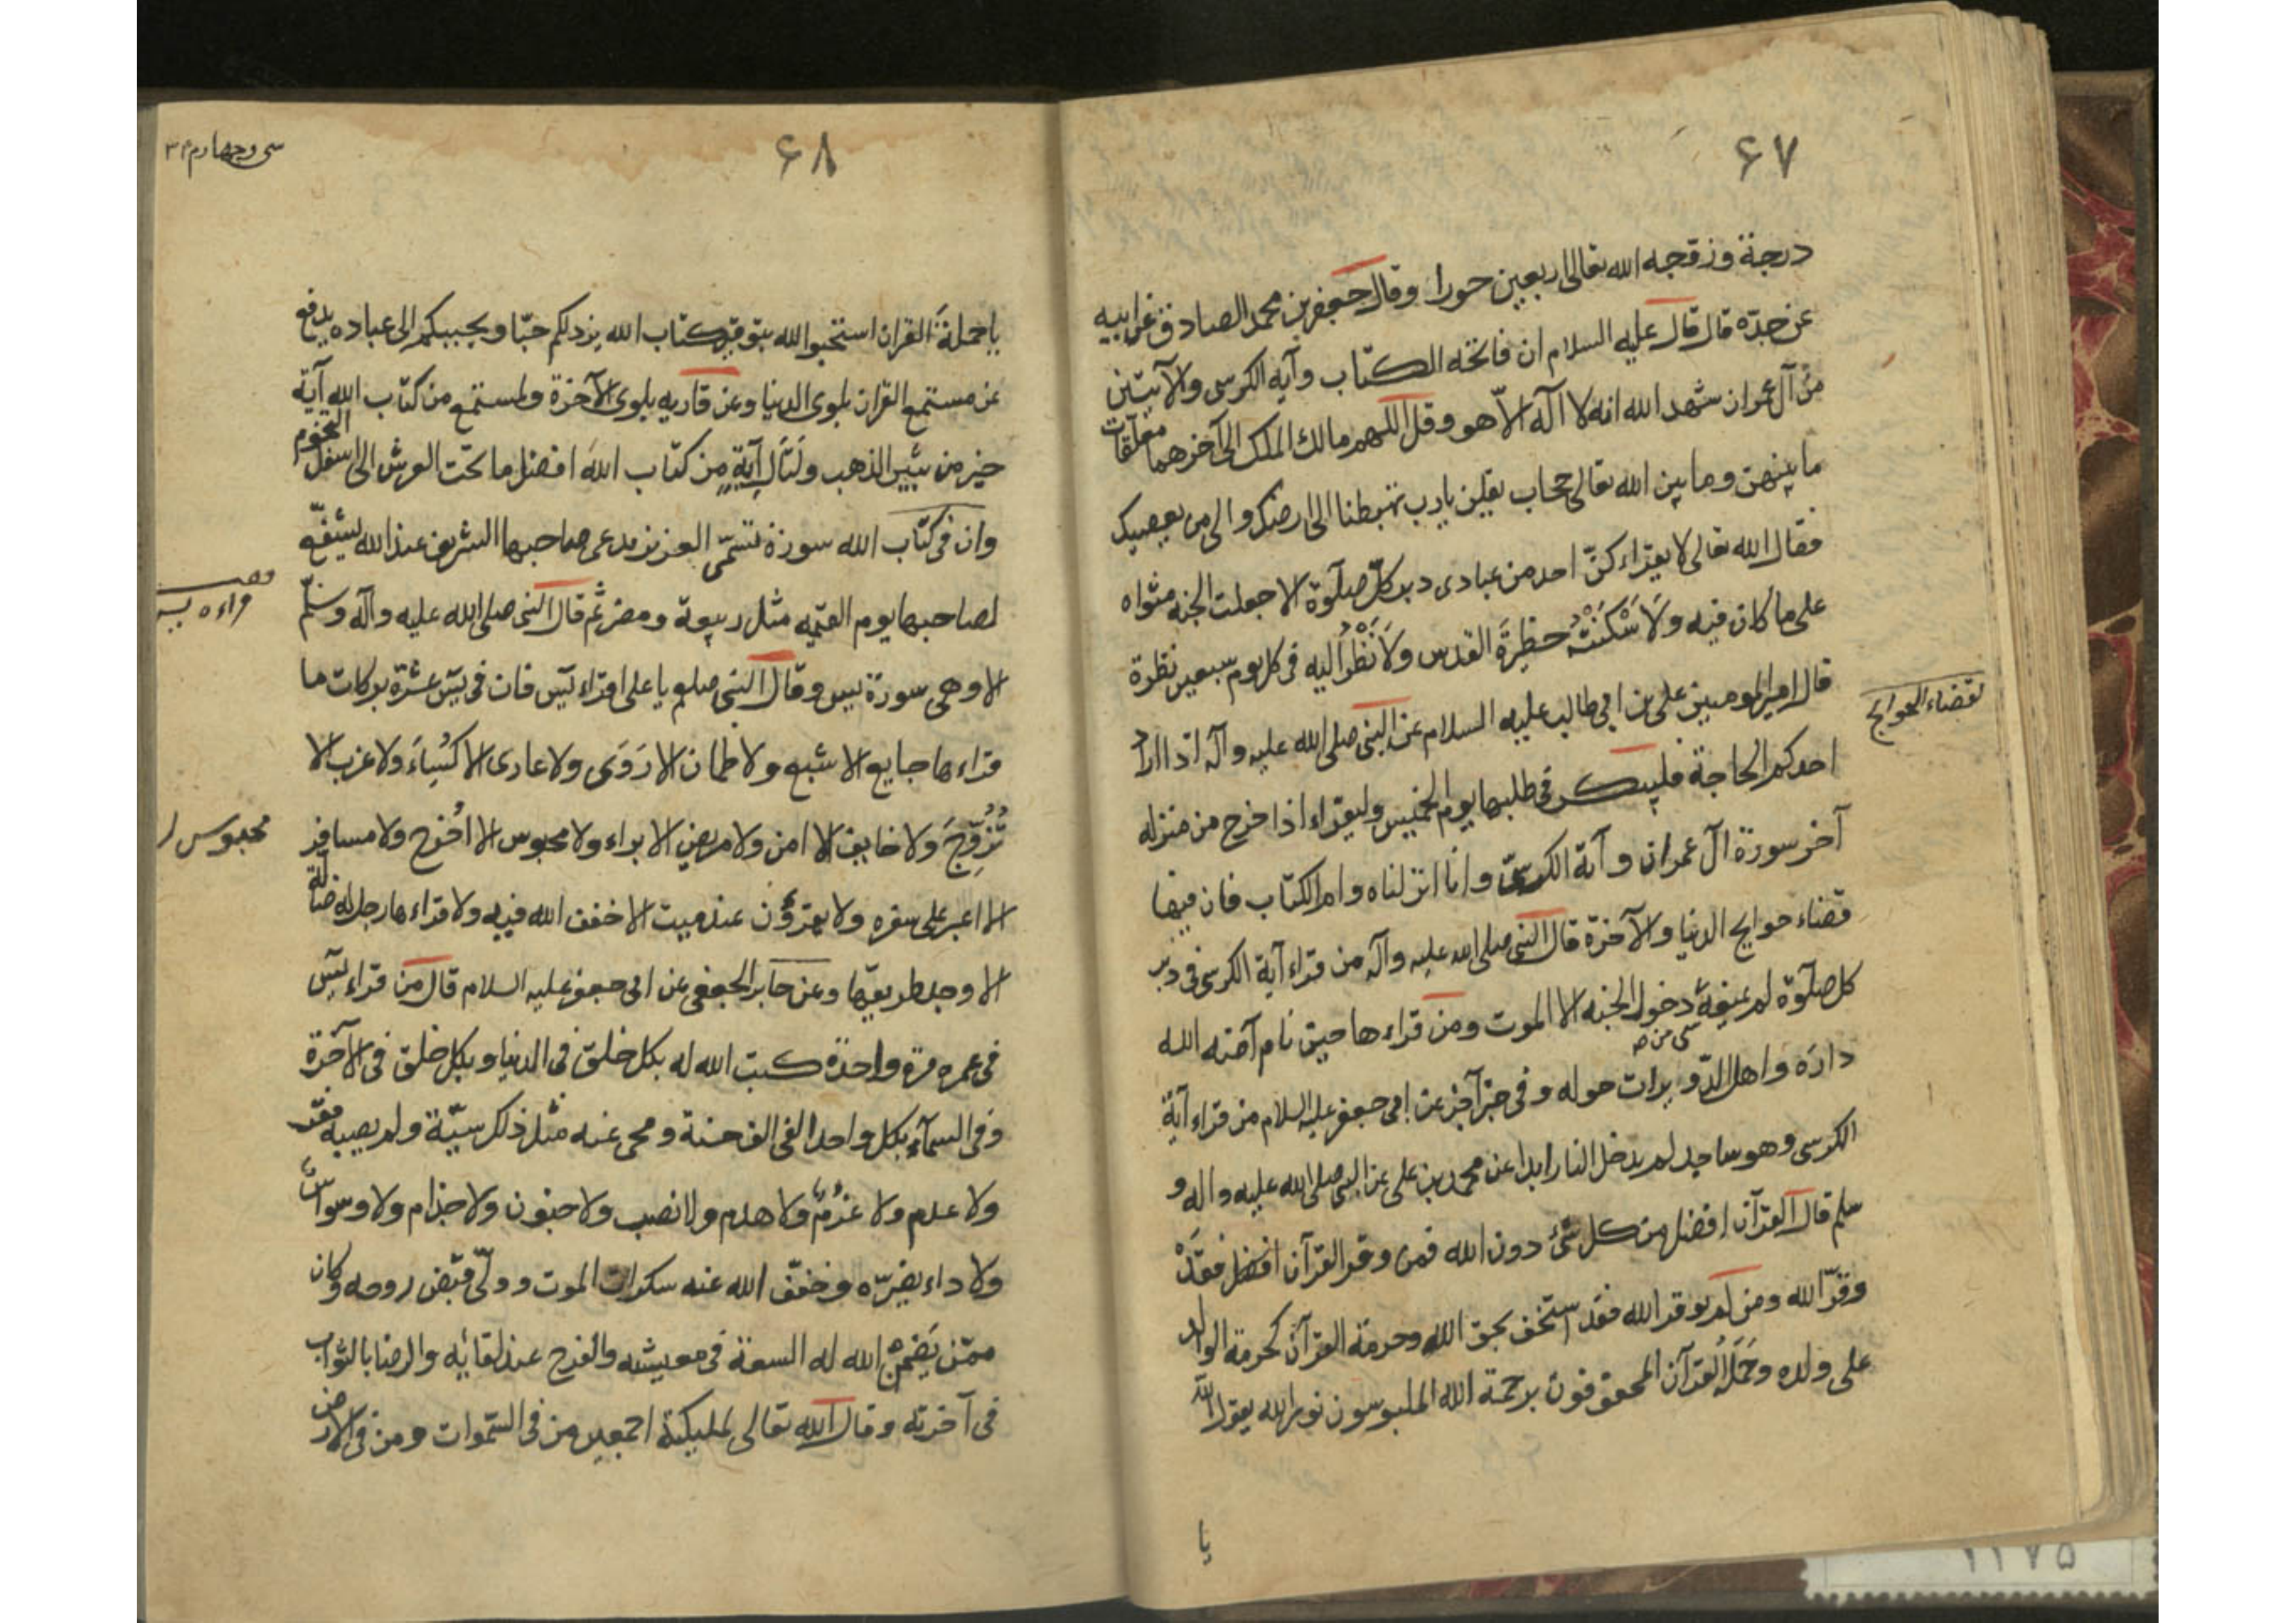 ۶۷
درجة وزوّجه الله تعالى اربعين حورا وقال جعفر بن محمد الصادق عن ابيه
عن جدّه قال قال عليه السلام ان فاتحه الكتاب وآيه الكرسى والآيتين
من آل عمران شهد الله انه لا اله الاّ هو وقل اللهم مالك الملك الى آخرهما معلّقات
ما بينهن وما بين الله تعالى حجاب يقلن يا رب تهبطنا الى ارضك والى من يعصيك
فقال الله تعالى لا يقراء كنّ احد من عبادى دبر كلّ صلوة الا جعلت الجنه مثواه
على ما كان فيه ولاَسْكَنْتُه حظيرة القدس ولاَنْظُر اليه فى كل يوم سبعين نظرة
لقضاء الحوايج
قال امير المومنين على بن ابي طالب عليه السلام عن النبى صلى الله عليه وآله اذا اراد
احدكم الحاجة فليبكر فى طلبها يوم الخميس وليقراء اذا خرج من منزله
آخر سورة آل عمران وآية الكرسىّ وانا انزلناه وام الكتاب فان فيها
قضاء حوايج الدنيا والآخرة قال النبى صلى الله عليه وآله من قراء آية الكرسى فى دبر
كل صلوة لم يمنعه دخول الجنه الا الموت ومن قراءها حين نام آمنه الله
داره واهل الدّويرات حوله وفى خبر آخر عن ابى جعفر عليه السلام من قراء آية
الكرسى وهو ساجد لم يدخل النار ابدا عن محمد بن على عن النبى صلى الله عليه واله و
سلم قال القرآن افضل من كل شئ دون الله فمن وقر القرآن فقد
وقّر الله ومن لم يوقر الله فقد استخف بحق الله وحرمة القرآن كحرمة الوالد
على ولده وحَمَلَة القرآن المحفوفون برحمة الله الملبوسون نور الله يقول الله
يا
۶۸
سى وچهارم ۳۴
يا حملةَ القران استحبوا الله بتوقير كتاب الله يزدلكم حبّا ويحببكم الى عباده يدفع
عن مستمع القران بلوى الدنيا وعن قاريه بلوى الآخرة ولمستمع من كتاب الله آية
خير من ثبير الذهب ولتال آيةٍ من كتاب الله افضل مما تحت العرش الى اسفل التخوم
وان فى كتاب الله سورة تسمّى العزيز يدعى صاحبها الشريف عند الله يشفع
لصاحبها يوم القيمه مثل ربيعة ومضر ثم قال النبى صلى الله عليه وآله وسلم
الا وهى سورة يس وقال النبى صلعم يا على اقراء يس فان فى يس عشرة بركات ما
قراءها جايع الا شبع ولا ظمان الا رَوَى ولا عارى الا كُسِىَ ولا عزب الا
تُزُوِّجَ ولا خايف الا امن ولا مريض الا براء ولا محبوس الا اُخرج ولا مسافر
محبوس
الا اعير على سفره ولا يقرؤن عند ميت الا خفف الله فيه ولا قراءها رجل له ضالّة
الا وجد طريقها وعن جابر الجعفى عن ابى جعفر عليه السلام قال من قراء يس
فى عمره مرة واحدة كتب الله له بكل خلق فى الدنيا وبكل خلق فى الآخرة
وفى السمآء بكل واحد الفى الف حسنة ومحى عنه مثل ذلك سيّئة ولم يصبه فقر
ولا عدم ولا غُرْمٌ ولا هدم ولا نصب ولا جنون ولا جذام ولا وسواس
ولا داء يضرّه وخفّف الله عنه سكرات الموت وولّى قبض روحه وكان
ممّن يَضْمَن الله له السعة فى معيشته والفرح عند لقائه والرضا بالثواب
فى آخرته وقال الله تعالى لمليكته اجمعين من فى السّموات ومن فى الارض
۱۲۷۵